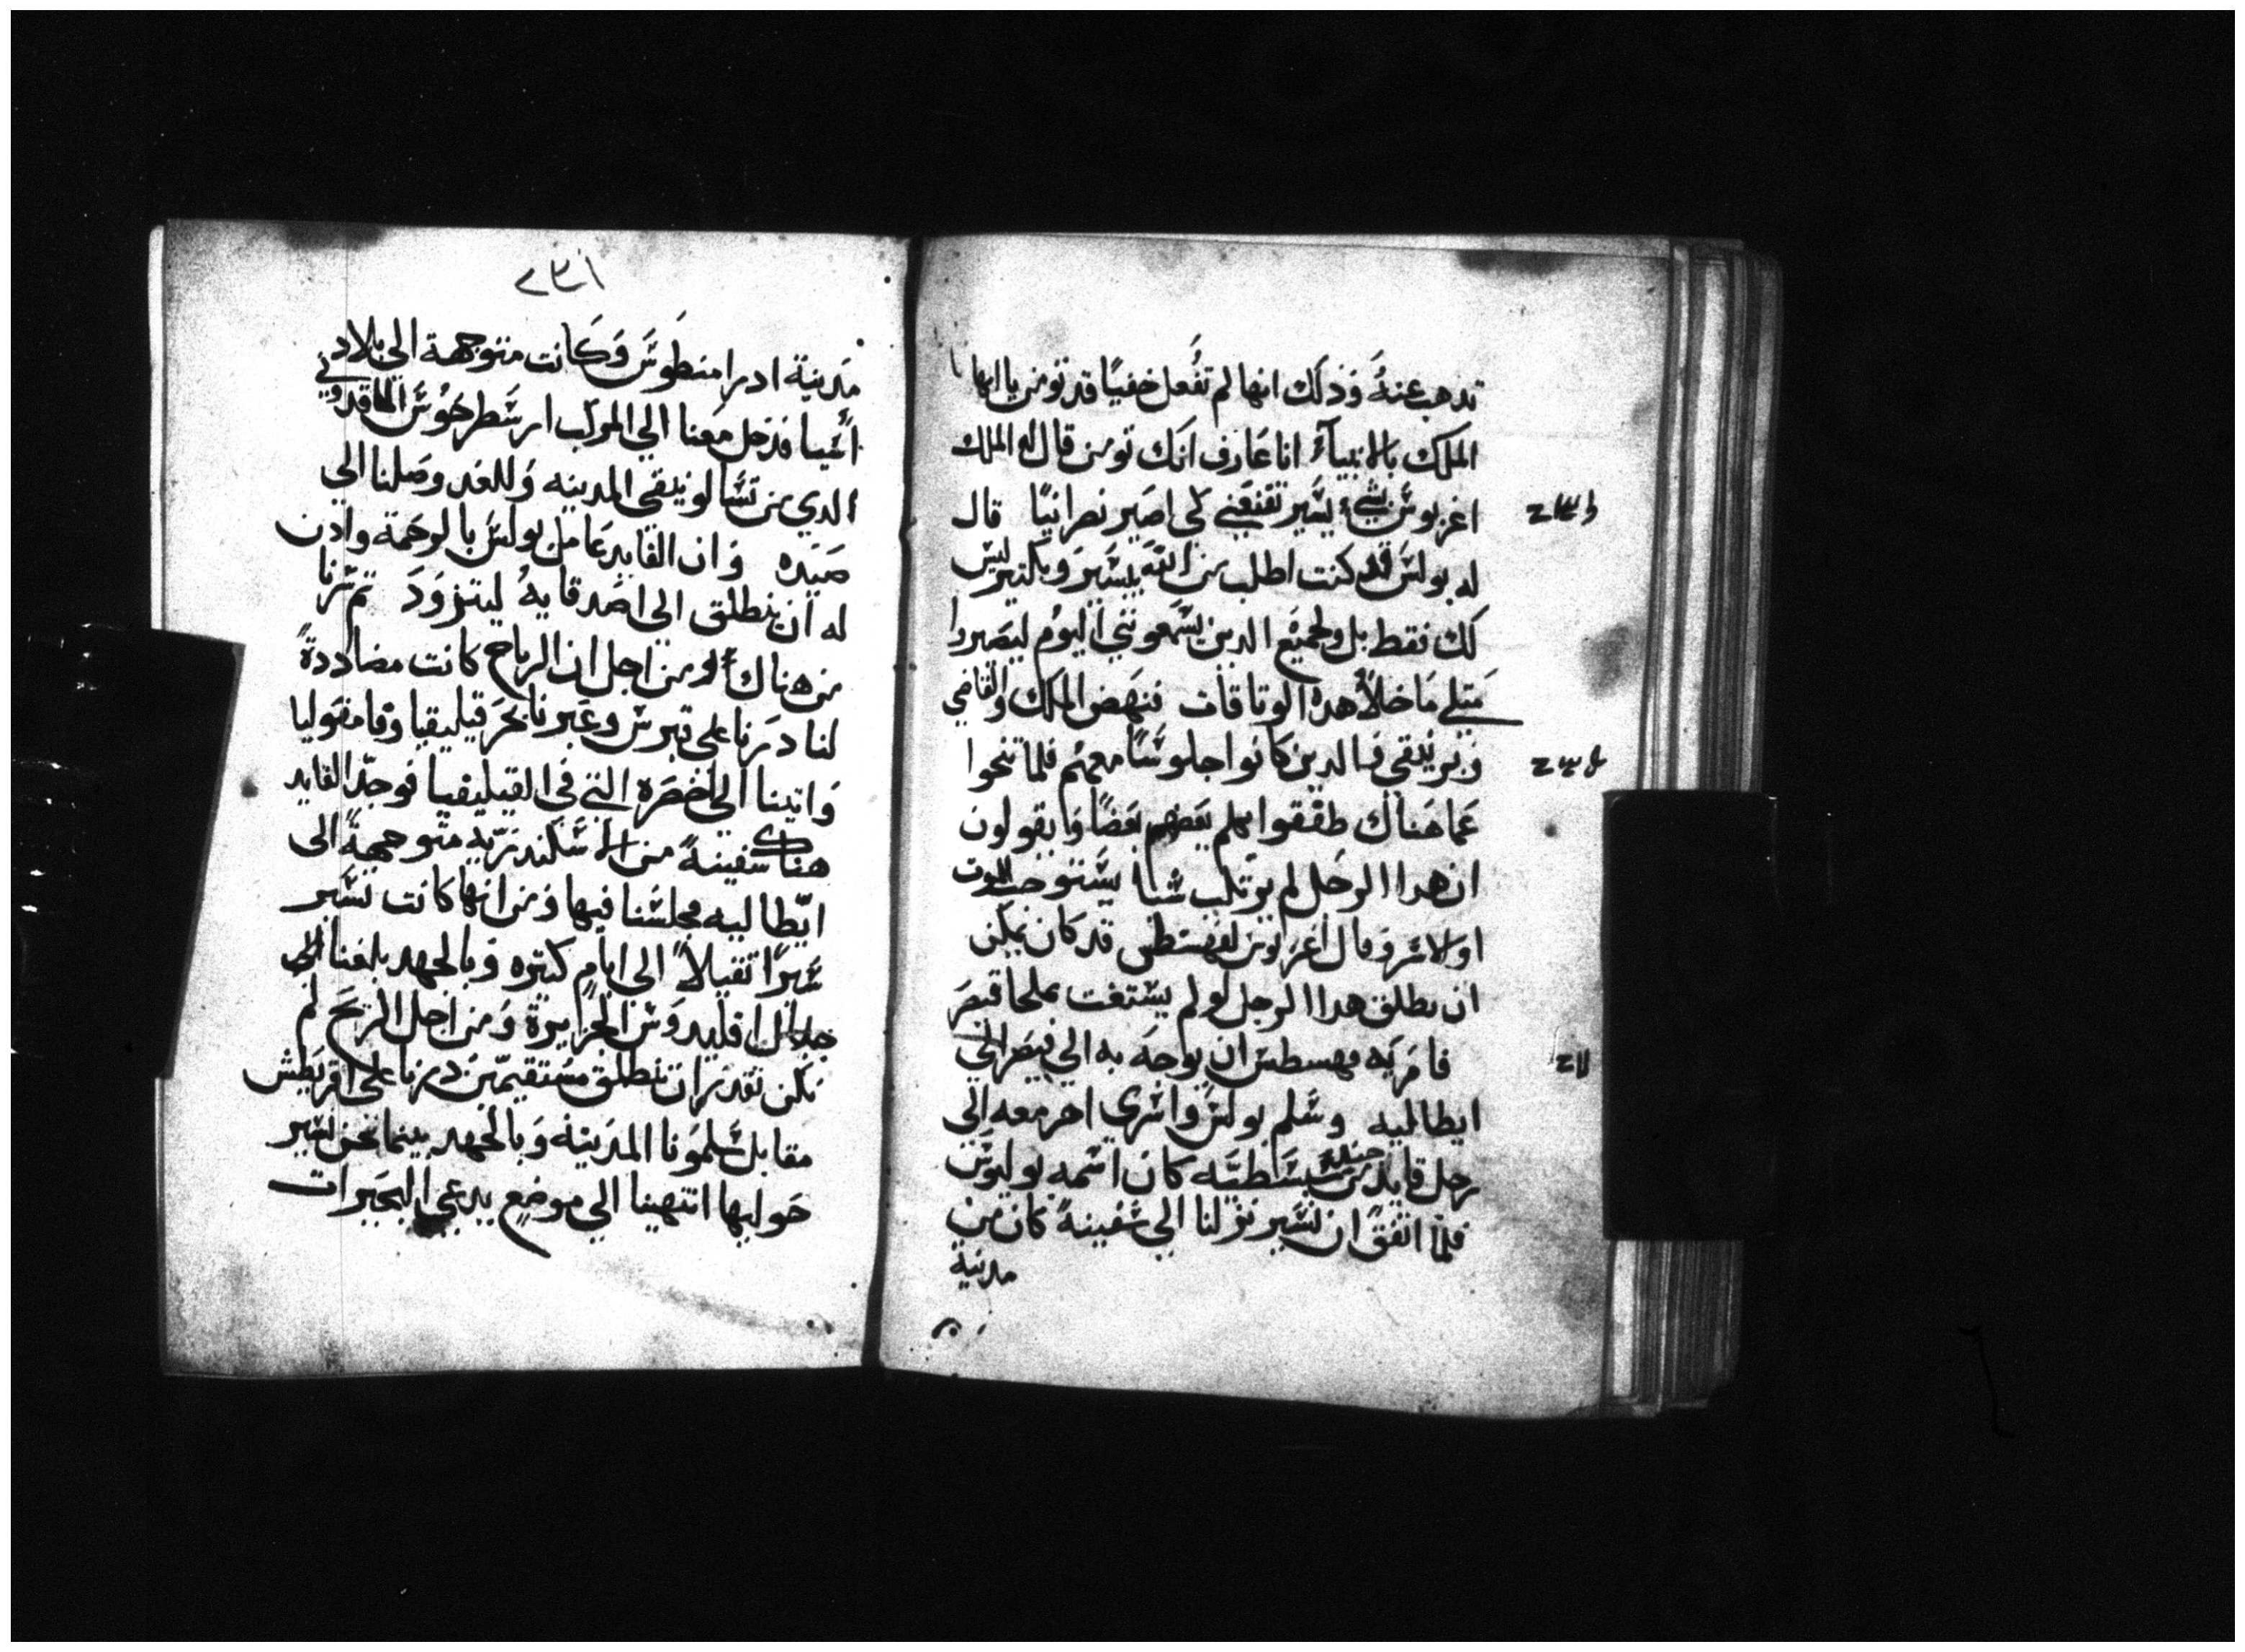 تدهب عنهُ وَذلك انها لم تفُعل خفيًا قد تومن يا ايها
الملك بالانبيآء انا عَارف انك تومن قال له الملك
اغربوسَّ بشيء يسَّير تقنعَني لكى اصَير نصرانيًا قال
له بولسَّ قد كنت اطلب من الله بيسَّير وبكتير ليسَّ
لك فقط بل ولجميَع الدين يسَّمعونني اليوُم ليَصيروا
مَتلي مَا خلاُ هده الوتاقات فنهَض الملك والقاضي
وبرنيقي والدين كانوا جلوسًَّا معهُم فلما تنحوا
عَما هَناك طفقوا يكلم بعَضهم بعَضًا ويقولون
ان هدا الرجَل لم يرتكب شيا يسَّتوجب الموت
او الاسَّر وقال اغربوسَّ لفهسَّطسَّ قد كان يمكن
ان يطلق هدا الرجل لو لم يسَّتغت بملجا قيصَر
فامَر به فهسطسَّ ان يوجه به الي قيصَر الي
ايطاليه وسَّلم بولسَّ واسَّرى اخر معه الى
رجل قايد من جند سَّبسَّطيَّه كان اسَّمه يوليوسَّ
فلمّا اتفق ان نسَّير نزلنا الي سَّفينةً كان من
مدينة
٢٣١
مَدينة ادرامنطوسَّ وَكانت متوجهة الي بلاد
اسَّيا فدخل مَعنا الي المركب ارسَّطرخوُسَّ الماقدوني
الدي من تسَّالونيقي المدينه وَللغد وصَلنا الي
صَيده وَان القايد عَامل بولسَّ بالرحَمة وادن
له ان ينطلق الي اصَدقايهُ ليتزوَدَ تم سَّرنا
من هناك ومن اجل ان الرياح كانت مضاددةً
لنا درَنا على قبرسَّ وعَبرنا بحَر قيليقيا وفامفوليا
وَاتينا الي اخضرَه التي في القيليقيا فوجدّ القايد
هناك سَّفينةً من الاسَّكندرَيه متوجهةً الى
ايّطاليه فجلسَّنا فيها ومن انها كانت تسَّير
سَّيرًا تقيلاً الى ايامٍ كتيره وَبالجهد بلغنا الى
اقليدوَسَّ الجزايرة وَمن اجل الريَح لم
نكن نقدَر ان ننطلق مسَّتقيمّين دَرنا على اقريَطشَّ
مقابل سَّلمونا المدَينة وَبالجهد بينما نحن نسَّير
حَواليها انتهينا الي موضع يدعى البحَيرات